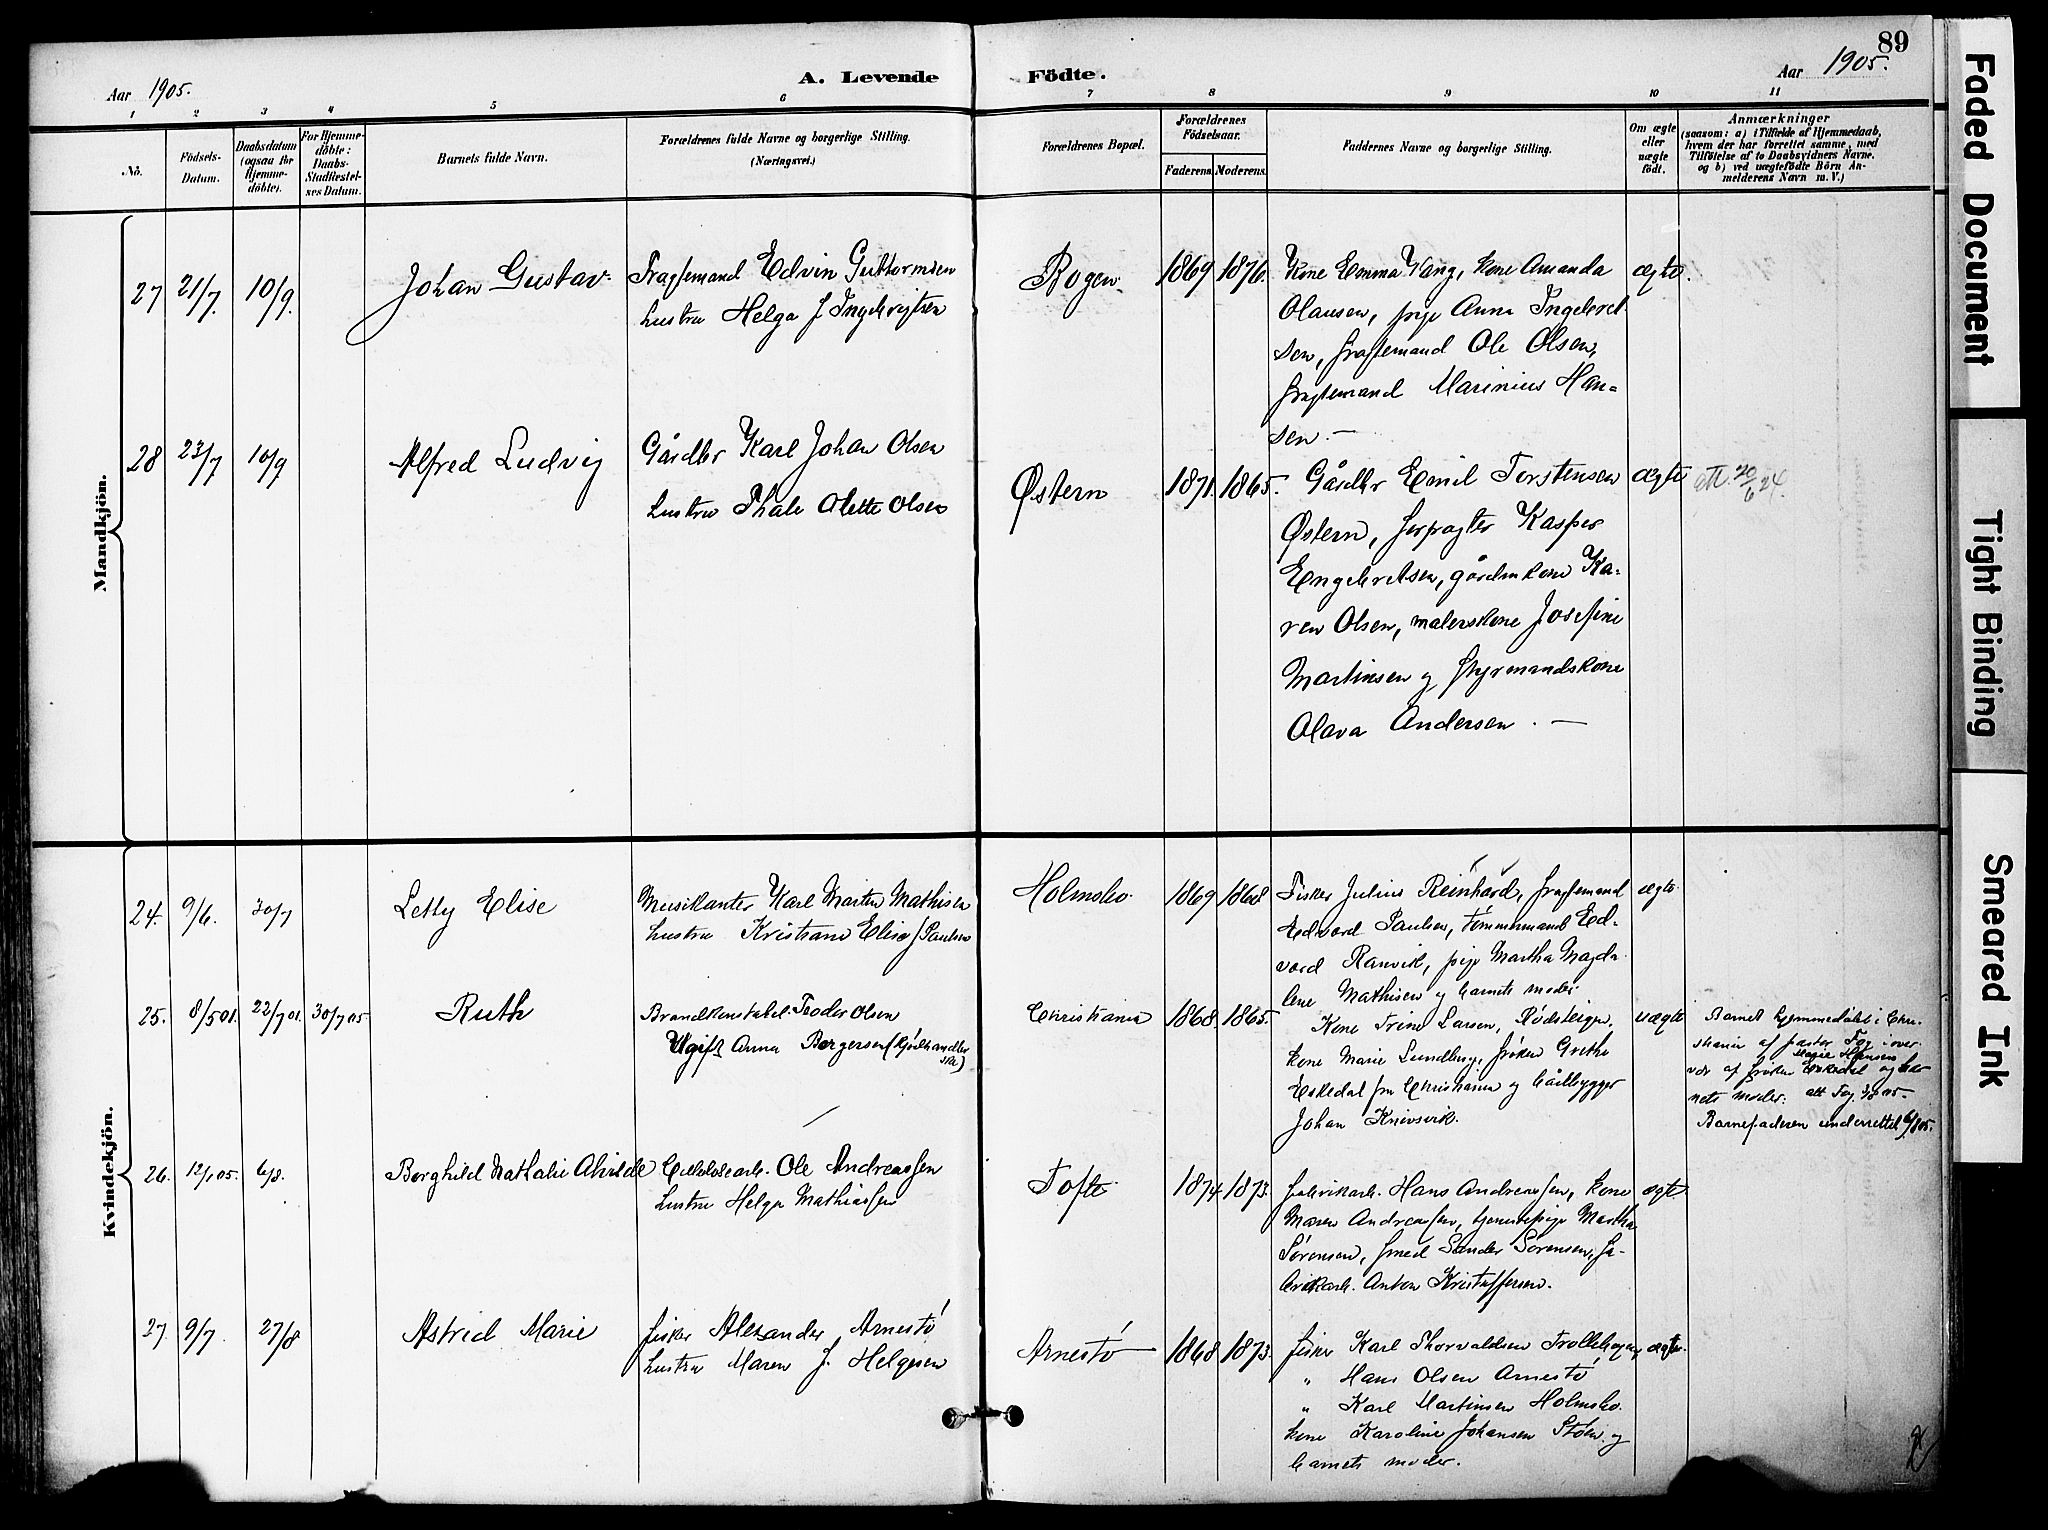 89
Aar 1905.
A. Levende Födte.
Aar 1905.
1 2 3 4 5 6 7 8 9 10 11
No.
Födsels-
Datum.
Daabsdatum
(ogsaa for
Hjemme-
döbte).
For Hjemme-
döbte:
Daabs-
Stadfæstel-
ses Datum.
Barnets fulde Navn.
Forældrenes fulde Navne og borgerlige Stilling.
(Næringsvei.)
Forældrenes Bopæl.
Forældrenes
Födselsaar.
Faderens. Moderens.
Faddernes Navne og borgerlige Stilling.
Om ægte
eller
uægte
födt.
Anmærkninger
(saasom: a) i Tilfælde af Hjemmedaab,
hvem der har forrettet samme, med
Tilföielse af to Daabsvidners Navne,
og b) ved uægtefödte Börn An-
melderens Navn m. V.)
Mandkjön.
27 21/7. 10/9. Johan Gustav
Fragtemand Edvin Guttormsen
hustru Helga f Ingebrigtsen
Bogen 1869 1876.
Kone Emma Vang, kone Amanda
Olausen, pige Anna Ingebret-
sen, fragtemand Ole Olsen,
fragtemand Marinius Han-
sen.—
ægte.
28 23/7 10/9 Alfred Ludvig
Gårdbr Karl Johan Olsen
hustru Thale Olette Olsen
Østern 1871. 1865.
Gårdbr Emil Torstensen
Østern, forpagter Kasper
Engebretsen, gårdmkone Ka-
ren Olsen, malerskone Josefine
Martinsen og styrmandskone
Olava Andersen.—
ægte att. 20/6 24.
Kvindekjön.
24. 9/6. 30/7 Letty Elise
Musikanter Karl Martin Mathisen
hustru Kristiane Elise f Paulsen
Holmsbo. 1869 1868
Fisker Julius Reinhard, fragtemand
Edvard Paulsen, tømmermand Ed-
vard Ranvik, pige Martha Magda-
lene Mathisen og barnets moder.
ægte.
25. 8/5 01. 22/7 01. 30/7 05 Ruth
Brandkonstabel Teodor Olsen
Ugift Anna Børgersen (kjolhandler
ske)
Christiania 1868. 1865.
Kone Trine Larsen, Rødsteigen,
kone Marie Lundberg, frøken Grethe
Eskedal fra Christiania og båtbygger
Johan Knivsvik.
uægte
Barnet hjemmedøbt i Chri-
stiania af pastor Fog i over-
vær af frøken Marie Hansen Eskedal og bar-
nets moder: att Fog 3/8 05.
Barnefaderen underrettet 6/8 05.
26. 12/1 05. 6/8. Borghild Nathalie Alvilde
Cellulosearb. Ole Andreassen
hustru Helga Mathiassen
Tofte. 1874. 1873.
fabrikarb. Hans Andreassen, kone
Maren Andreassen, tjenestepige Martha
Sørensen, smed Sander Sørensen, fa-
brikarb. Anton Kristoffersen.
ægte.
27. 9/7. 27/8 Astrid Marie
fisker Alexander Arnestø
hustru Maren J. Helgesen
Arnestø 1868. 1873.
fisker Karl Thorvaldsen Trollehogen
" Hans Olsen Arnestø
" Karl Martinsen Holmsbo.
kone Karoline Johansen Støa og
barnets moder.
ægte.
Faded Document
Tight Binding
Smeared Ink